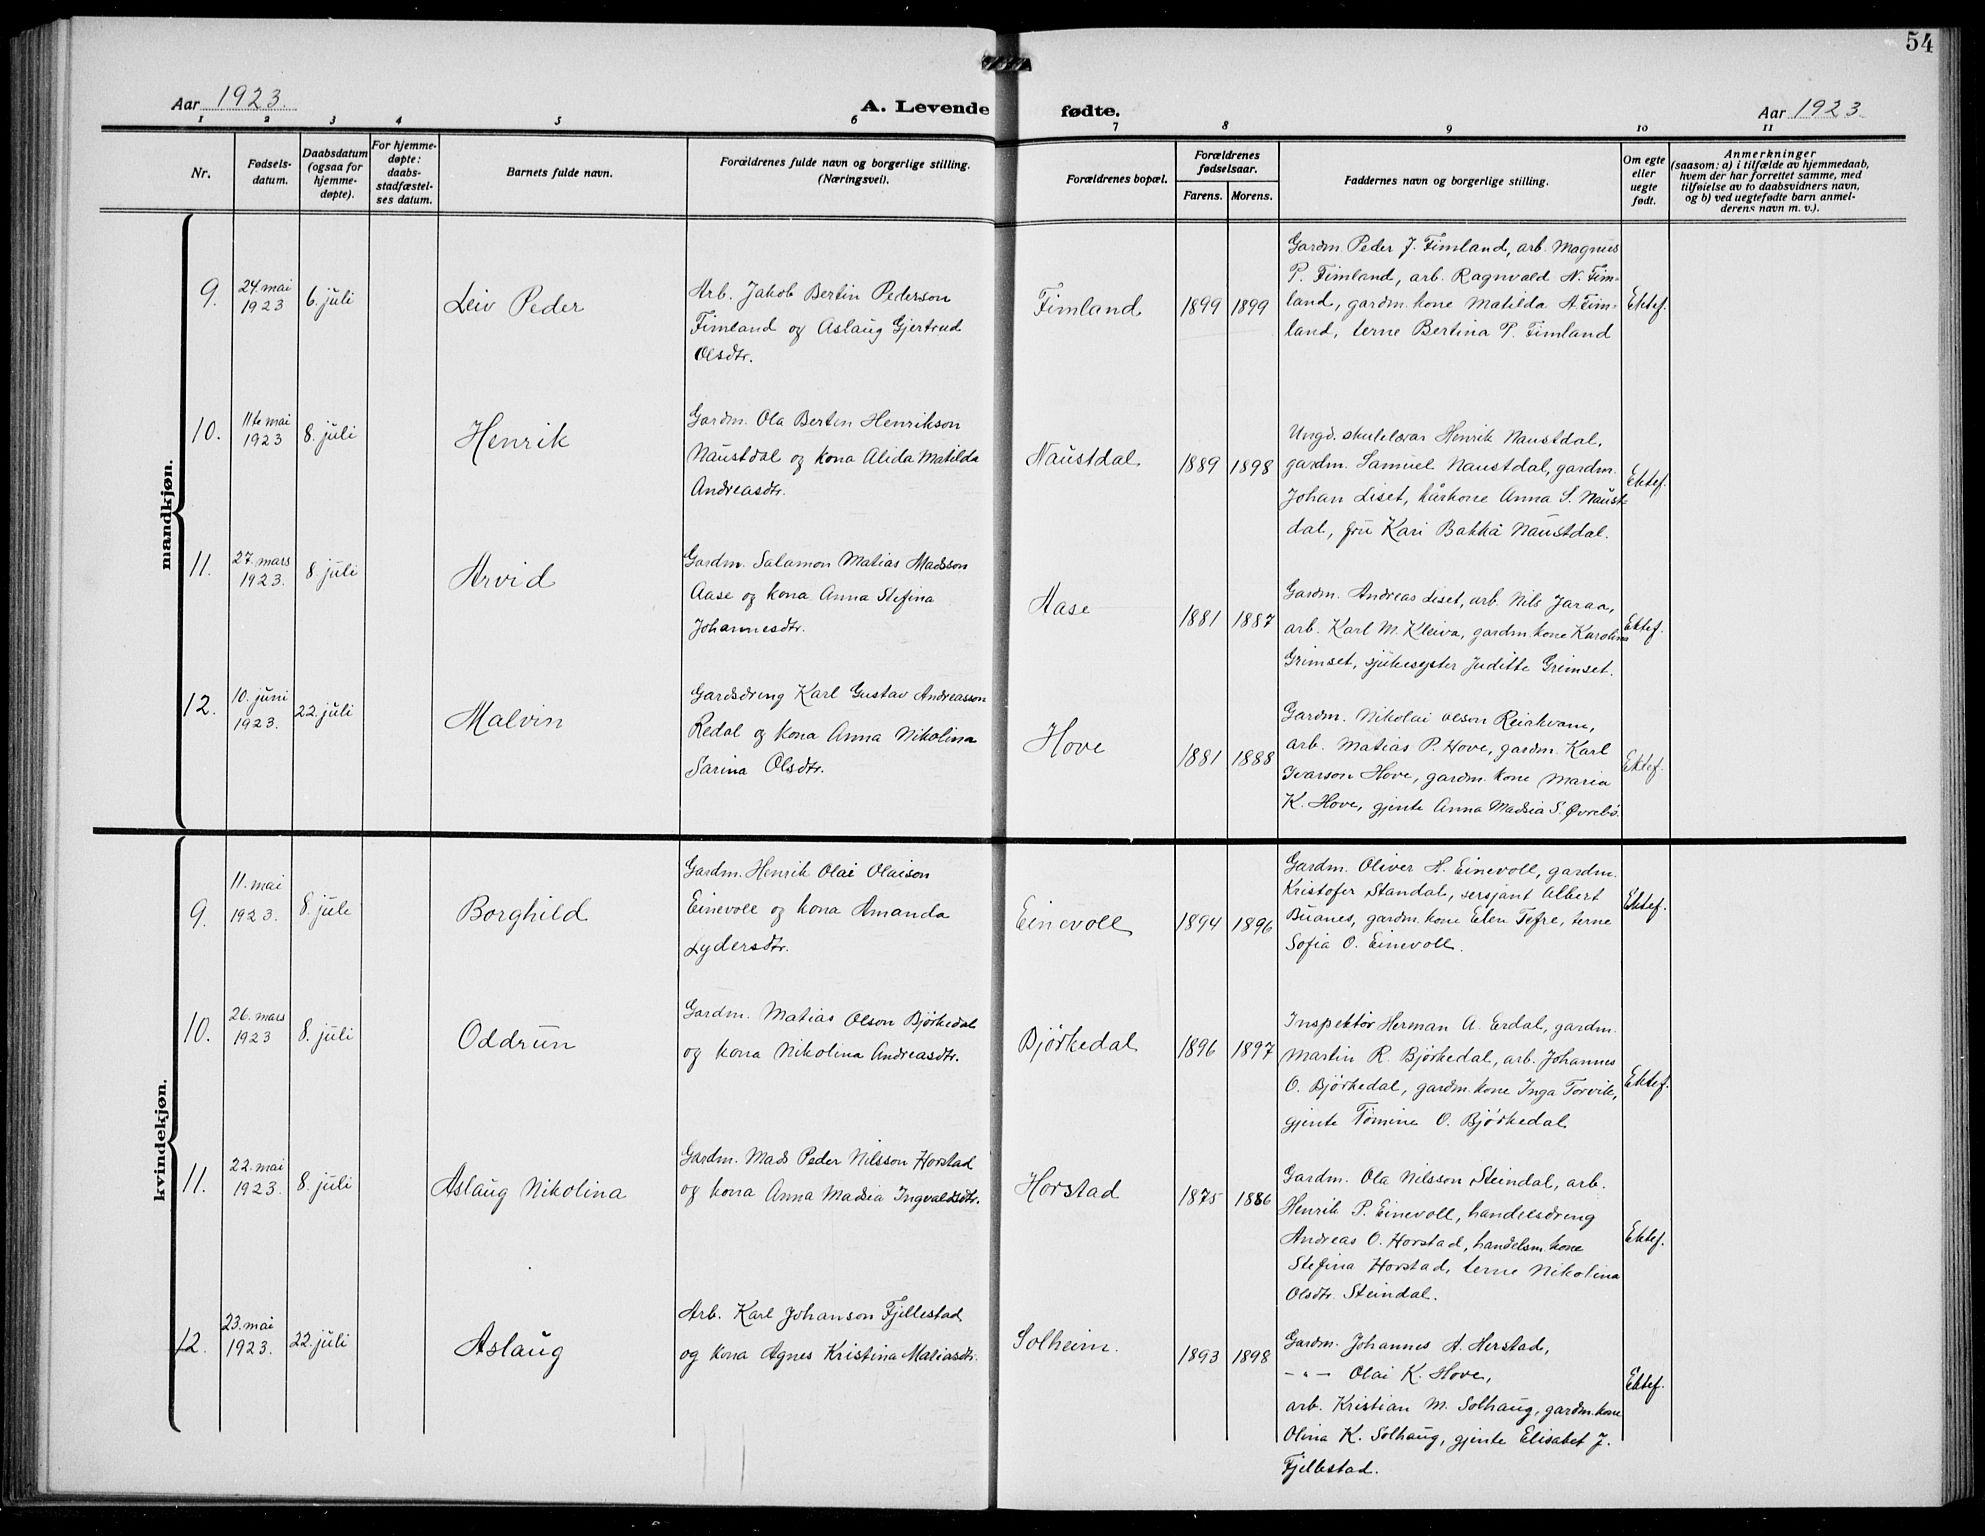 54
Aar 1923.
A. Levende fødte.
Aar 1923.
1 2 3 4 5 6 7 8 9 10 11
Nr.
Fødsels-
datum.
Daabsdatum
(ogsaa for
hjemme-
døpte).
For hjemme-
døpte:
daabs-
stadfæstel-
ses datum.
Barnets fulde navn.
Forældrenes fulde navn og borgerlige stilling.
(Næringsvei).
Forældrenes bopæl.
Forældrenes
fødselsaar.
Farens. Morens.
Faddernes navn og borgerlige stilling.
Om egte
eller
uegte
født.
Anmerkninger
(saasom: a) i tilfælde av hjemmedaab,
hvem der har forrettet samme, med
tilføielse av to daabsvidners navn,
og b) ved uegtefødte barn anmel-
derens navn m. v.).
mandkjøn.
9.
24 mai
1923
6. juli
Leiv Peder
Arb. Jakob Bertin Pederson
Fimland og Aslaug Gjertrud
Olsdtr.
Fimland
1899 1899
Gardm. Peder J. Fimland, arb. Magnus
P. Fimland, arb. Ragnvald N. Fim-
land, gardm. kone Matilda A. Fim-
land, terne Bertina P. Fimland
Ektef.
10.
11te mai
1923
8. juli
Henrik
Gardm. Ola Berten Henrikson
Naustdal og kona Alida Matilda
Andreasdtr.
Naustdal
1889 1898
Ungd. skulelærar Henrik Naustdal,
gardm. Samuel Naustdal, gardm.
Johan Liset, kårkone Anna S. Naust-
dal, fru Kari Bakkå Naustdal.
Ektef.
11.
27. mars
1923.
8 juli
Arvid
Gardm. Salamon Matias Madsson
Aase og kona Anna Stefina
Johannesdtr.
Aase
1881 1887
Gardm. Andreas Liset, arb. Nils Jaraa,
arb. Karl M. Kleiva, gardm. kone Karolina
Grimset, sjukesyster Juditte Grimset.
Ektef.
12.
10. juni
1923.
22. juli
Malvin
Gardsdreng Karl Gustav Andreasson
Redal og kona Anna Nikolina
Sarina Olsdtr.
Hove
1881 1888
Gardm. Nikolai Olson Reiakvam,
arb. Matias P. Hove, gardm. Karl
Ivarson Hove, gardm. kone Maria
K. Hove, gjente Anna Madsia S. Øvrebö.
Ektef.
kvindekjøn.
9.
11. mai
1923.
8. juli
Borghild
Gardm. Henrik Olai Olaison
Einevoll og kona Amanda
Lydersdtr.
Einevoll
1894 1896
Gardm. Oliver H. Einevoll, gardm.
Kristofer Standal, sersjant Albert
Buanes, gardm. kone Elen Tefre, terne
Sofia O. Einevoll.
Ektef.
10.
26. mars
1923
8. juli
Oddrun
Gardm. Matias Olson Bjørkedal
og kona Nikolina Andreasdtr.
Bjørkedal
1896 1897
Inspektör Herman A. Erdal, gardm.
Martin R. Bjørkedal, arb. Johannes
O. Bjørkedal, gardm. kone Inga Torvik,
gjente Tomine O. Bjørkedal
Ektef.
11.
22. mai
1923.
8. juli
Aslaug Nikolina
Gardm. Mads Peder Nilsson Horstad
og kona Anna Madsia Ingvaldsdtr.
Horstad
1875 1886
Gardm. Ola Nilsson Steindal, arb.
Henrik P. Einevoll, handelsdreng
Andreas O. Horstad, handelsm. kone
Stefina Horstad, terne Nikolina
Olsdtr. Steindal.
Ektef.
12.
23. mai
1923.
22. juli
Aslaug
Arb. Karl Johanson Fjellestad
og kona Agnes Kristina Matiasdtr.
Solheim.
1893 1898
Gardm. Johannes A. Herstad,
– " – Olai K. Hove,
arb. Kristian M. Solhaug, gardm. kone
Olina K. Solhaug, gjente Elisabet J.
Fjellestad.
Ektef.